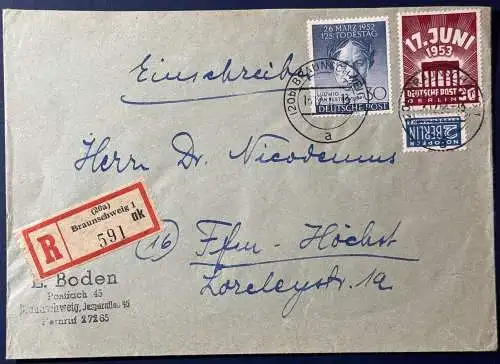 26. MÄRZ 1952
125. TODESTAG
30
DEUTSCHE POST
17. JUNI
1953
DEUTSCHE POST
BERLIN
NOTOPFER
2 BERLIN
(20b) BRAUNSCHWEIG
a
Einschreiben
Herrn Dr. Nicodemus
(20a)
Braunschweig 1
R 591 ok
(16) Ffm - Höchst
Loreleystr. 1a
E. Boden
Postfach 45
Braunschweig, Jasperallee 45
Fernruf 27265